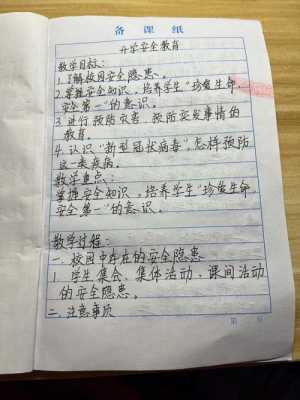 备课纸
开学安全教育
教学目标：
1.了解校园安全隐患。
2.掌握安全知识，培养学生“珍爱生命，
安全第一”的意识。
3.进行预防灾害，预防突发事情的
教育。
4.认识“新型冠状病毒”，怎样预防
这一类疾病。
教学重点：
掌握安全知识，培养学生“珍爱生命，
安全第一”的意识。
教学过程：
一、校园中存在的安全隐患
1.学生集会、集体活动、课间活动
的安全隐患。
二、注意事项
第 页